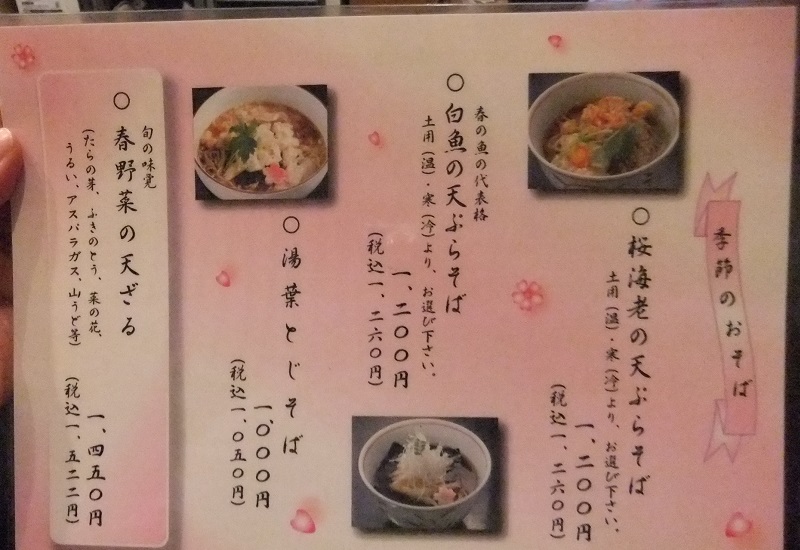 季節のおそば
○桜海老の天ぷらそば
土用(温)・寒(冷)より、お選び下さい。
一、二〇〇円
(税込一、二六〇円)
春の魚の代表格
○白魚の天ぷらそば
土用(温)・寒(冷)より、お選び下さい。
一、二〇〇円
(税込一、二六〇円)
○湯葉とじそば
一、〇〇〇円
(税込一、〇五〇円)
旬の味覚
○春野菜の天ざる
(たらの芽、ふきのとう、菜の花、
うるい、アスパラガス、山うど等)
一、四五〇円
(税込一、五二二円)